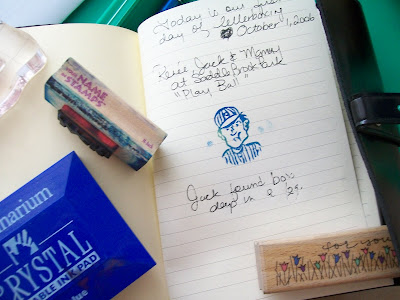 Today is our first
day of letterboxing
October 1, 2006
Jack & Mommy
at Saddle Brook Park
"Play Ball"
Jack found box
deep in a
NAME
STAMPS
CRYSTAL
INK PAD
for you